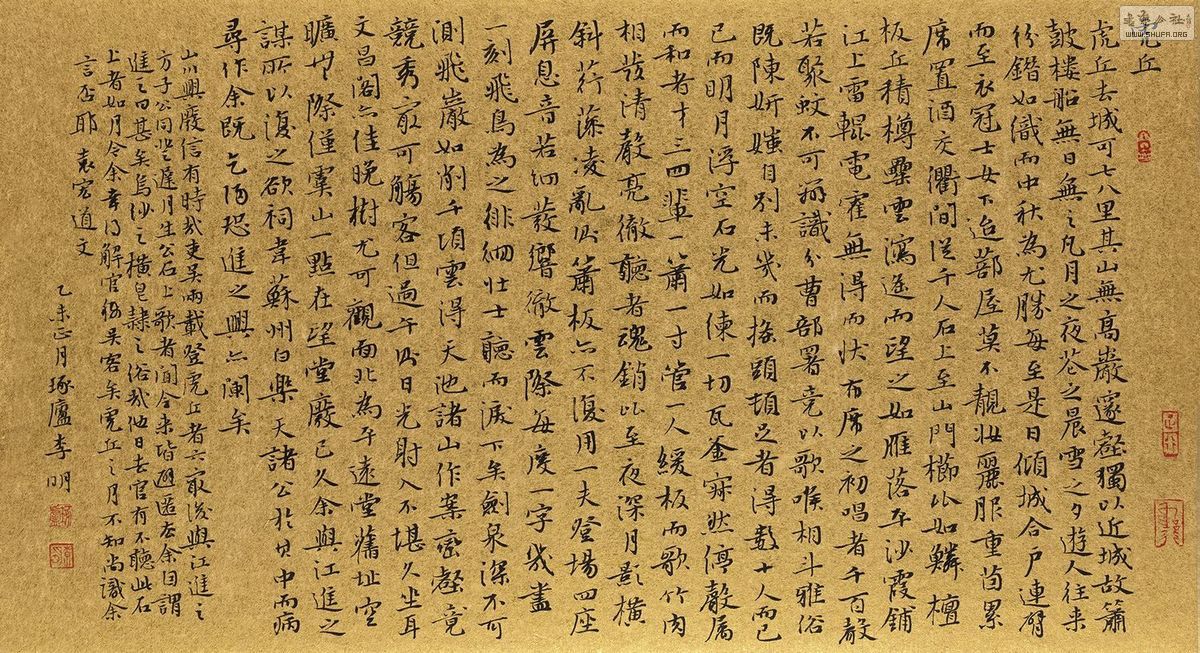 虎丘
虎丘去城可七八里其山無高巖邃壑獨以近城故簫
鼓樓船無日無之凡月之夜花之晨雪之夕遊人往來
紛錯如織而中秋為尤勝每至是日傾城合戶連臂
而至衣冠士女下迨蔀屋莫不靚妝麗服重茵累
席置酒交衢間從千人石上至山門櫛比如鱗檀
板丘積樽罍雲瀉遠而望之如雁落平沙霞鋪
江上雷輥電霍無得而狀布席之初唱者千百聲
若聚蚊不可辨識分曹部署竞以歌喉相斗雅俗
既陳妍媸自別未幾而搖頭頓足者得數十人而已
已而明月浮空石光如練一切瓦釜寂然停聲屬
而和者才三四輩一簫一寸管一人緩板而歌竹肉
相發清聲亮徹聽者魂銷比至夜深月影橫
斜荇藻凌亂則簫板亦不復用一夫登場四座
屏息音若細髮響徹雲際每度一字幾盡
一刻飛鳥為之徘徊壯士聽而淚下矣劍泉深不可
測飛巖如削千頃雲得天池諸山作案巒壑竟
競秀最可觴客但過午則日光射人不堪久坐耳
文昌閣亦佳晚樹尤可觀面北為平遠堂舊址空
曠無際僅虞山一點在望堂廢已久余與江進之
謀所以復之欲祠韋蘇州白樂天諸公於其中而病
尋作余既乞歸恐進之興亦闌矣
山川興廢信有時哉吏吳兩載登虎丘者六最後與江進之
方子公同登遲月生公石上歌者聞令來皆避匿去余因謂
進之曰甚矣烏紗之橫皂隸之俗哉他日去官有不聽此石
上者如月今余幸得解官稱吳客矣虎丘之月不知尚識余
言否耶 袁宏道文
乙未正月琢廬李明
书法公社
WWW.SHUFA.ORG